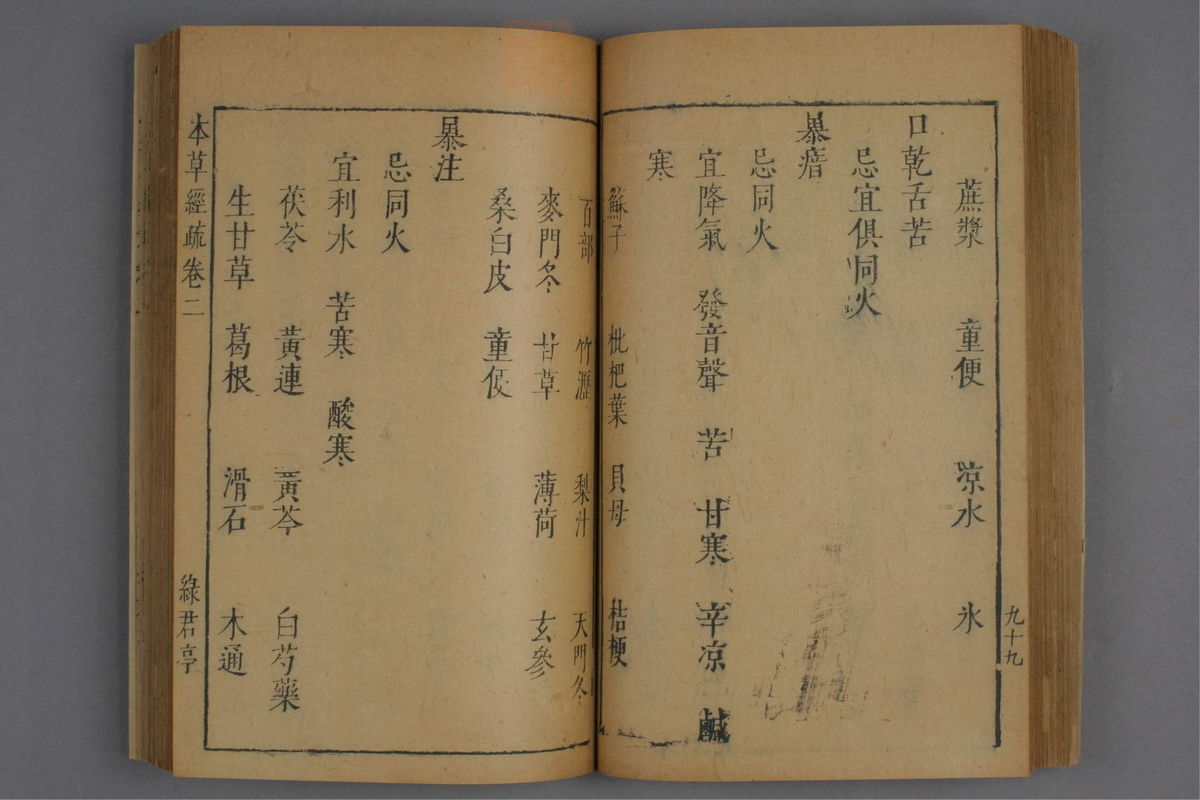 蔗漿　童便　凉水　氷
口乾舌苦
忌宜俱同火
暴瘖
忌同火
宜降氣　發音聲　苦　甘寒　辛凉　鹹
寒
蘇子　枇杷葉　貝母　桔梗
百部　竹瀝　梨汁　天門冬
麥門冬　甘草　薄荷　玄參
桑白皮　童便
暴注
忌同火
宜利水　苦寒　酸寒
茯苓　黃連　黃芩　白芍藥
生甘草　葛根　滑石　木通
本草經疏卷二　綠君亭
九十九